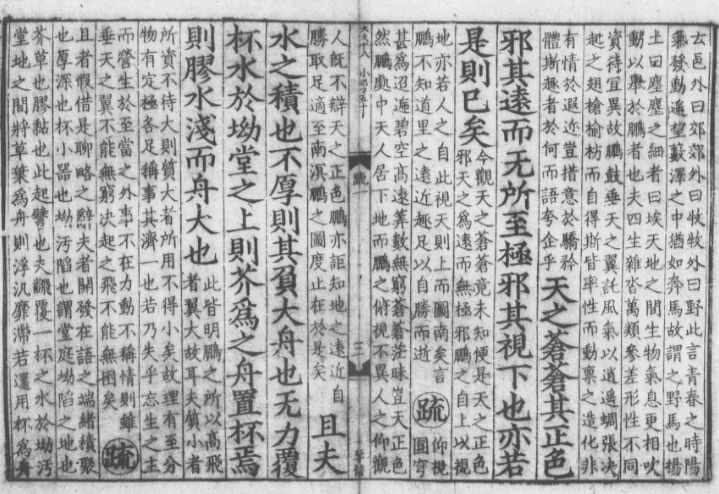 玄邑外曰郊郊外曰牧牧外曰野此言青春之時陽
氣發動遥望藪澤之中猶如奔馬故謂之野馬也揚
土曰塵塵之細者曰埃天地之間生物氣息更相吹
動以舉於鵬者也夫四生雜沓萬類參差形性不同
資待宜異故鵬鼓垂天之翼託風氣以逍遥蜩張决
起之翅搶榆枋而自得斯皆率性而動稟之造化非
有情於遐迩豈措意於驕矜
體斯趣者於何而語夸企乎
天之蒼蒼其正色
邪其遠而无所至極邪其視下也亦若
是則已矣
今觀天之蒼蒼竟未知便是天之正色
邪天之為遠而無極邪鵬之自上以視
地亦若人之自此視天則上而圖南矣言
鵬不知道里之遠近趣足以自勝而逝
疏
仰視
圓穹
甚為迢遰碧空髙遠筭數無窮蒼蒼茫昧豈天正色
然鵬處中天人居下地而鵬之俯視不異人之仰觀
三
人既不辯天之正色鵬亦詎知地之遠近自
勝取足適至南溟鵬之圖度止在於是矣
且夫
水之積也不厚則其負大舟也无力覆
杯水於坳堂之上則芥爲之舟置杯焉
則膠水淺而舟大也
此皆明鵬之所以髙飛
者翼大故耳夫質小者
所資不待大則質大者所用不得小矣故理有至分
物有定極各足稱事其濟一也若乃失乎忘生之主
而營生於至當之外事不在力動不稱情則雖
垂天之翼不能無窮决起之飛不能無困矣
疏
且者假借是聊略之辭夫者開發在語之端緒積聚
也厚深也杯小器也坳污陷也謂堂庭坳陷之地也
芥草也膠黏也此起譬也夫飜覆一杯之水於坳污
堂地之間將草葉爲舟則浮汎靡滯若還用杯爲舟